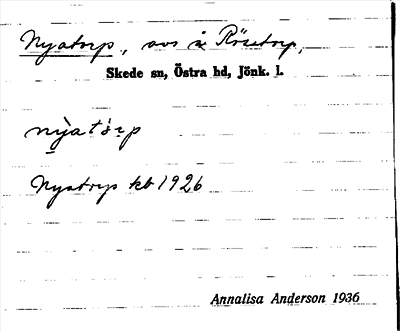 Nyatorp, avs å Rösetorp,
Skede sn, Östra hd, Jönk. l.
nỳatò̱rp
Nyatorp kb 1926
Annalisa Anderson 1936